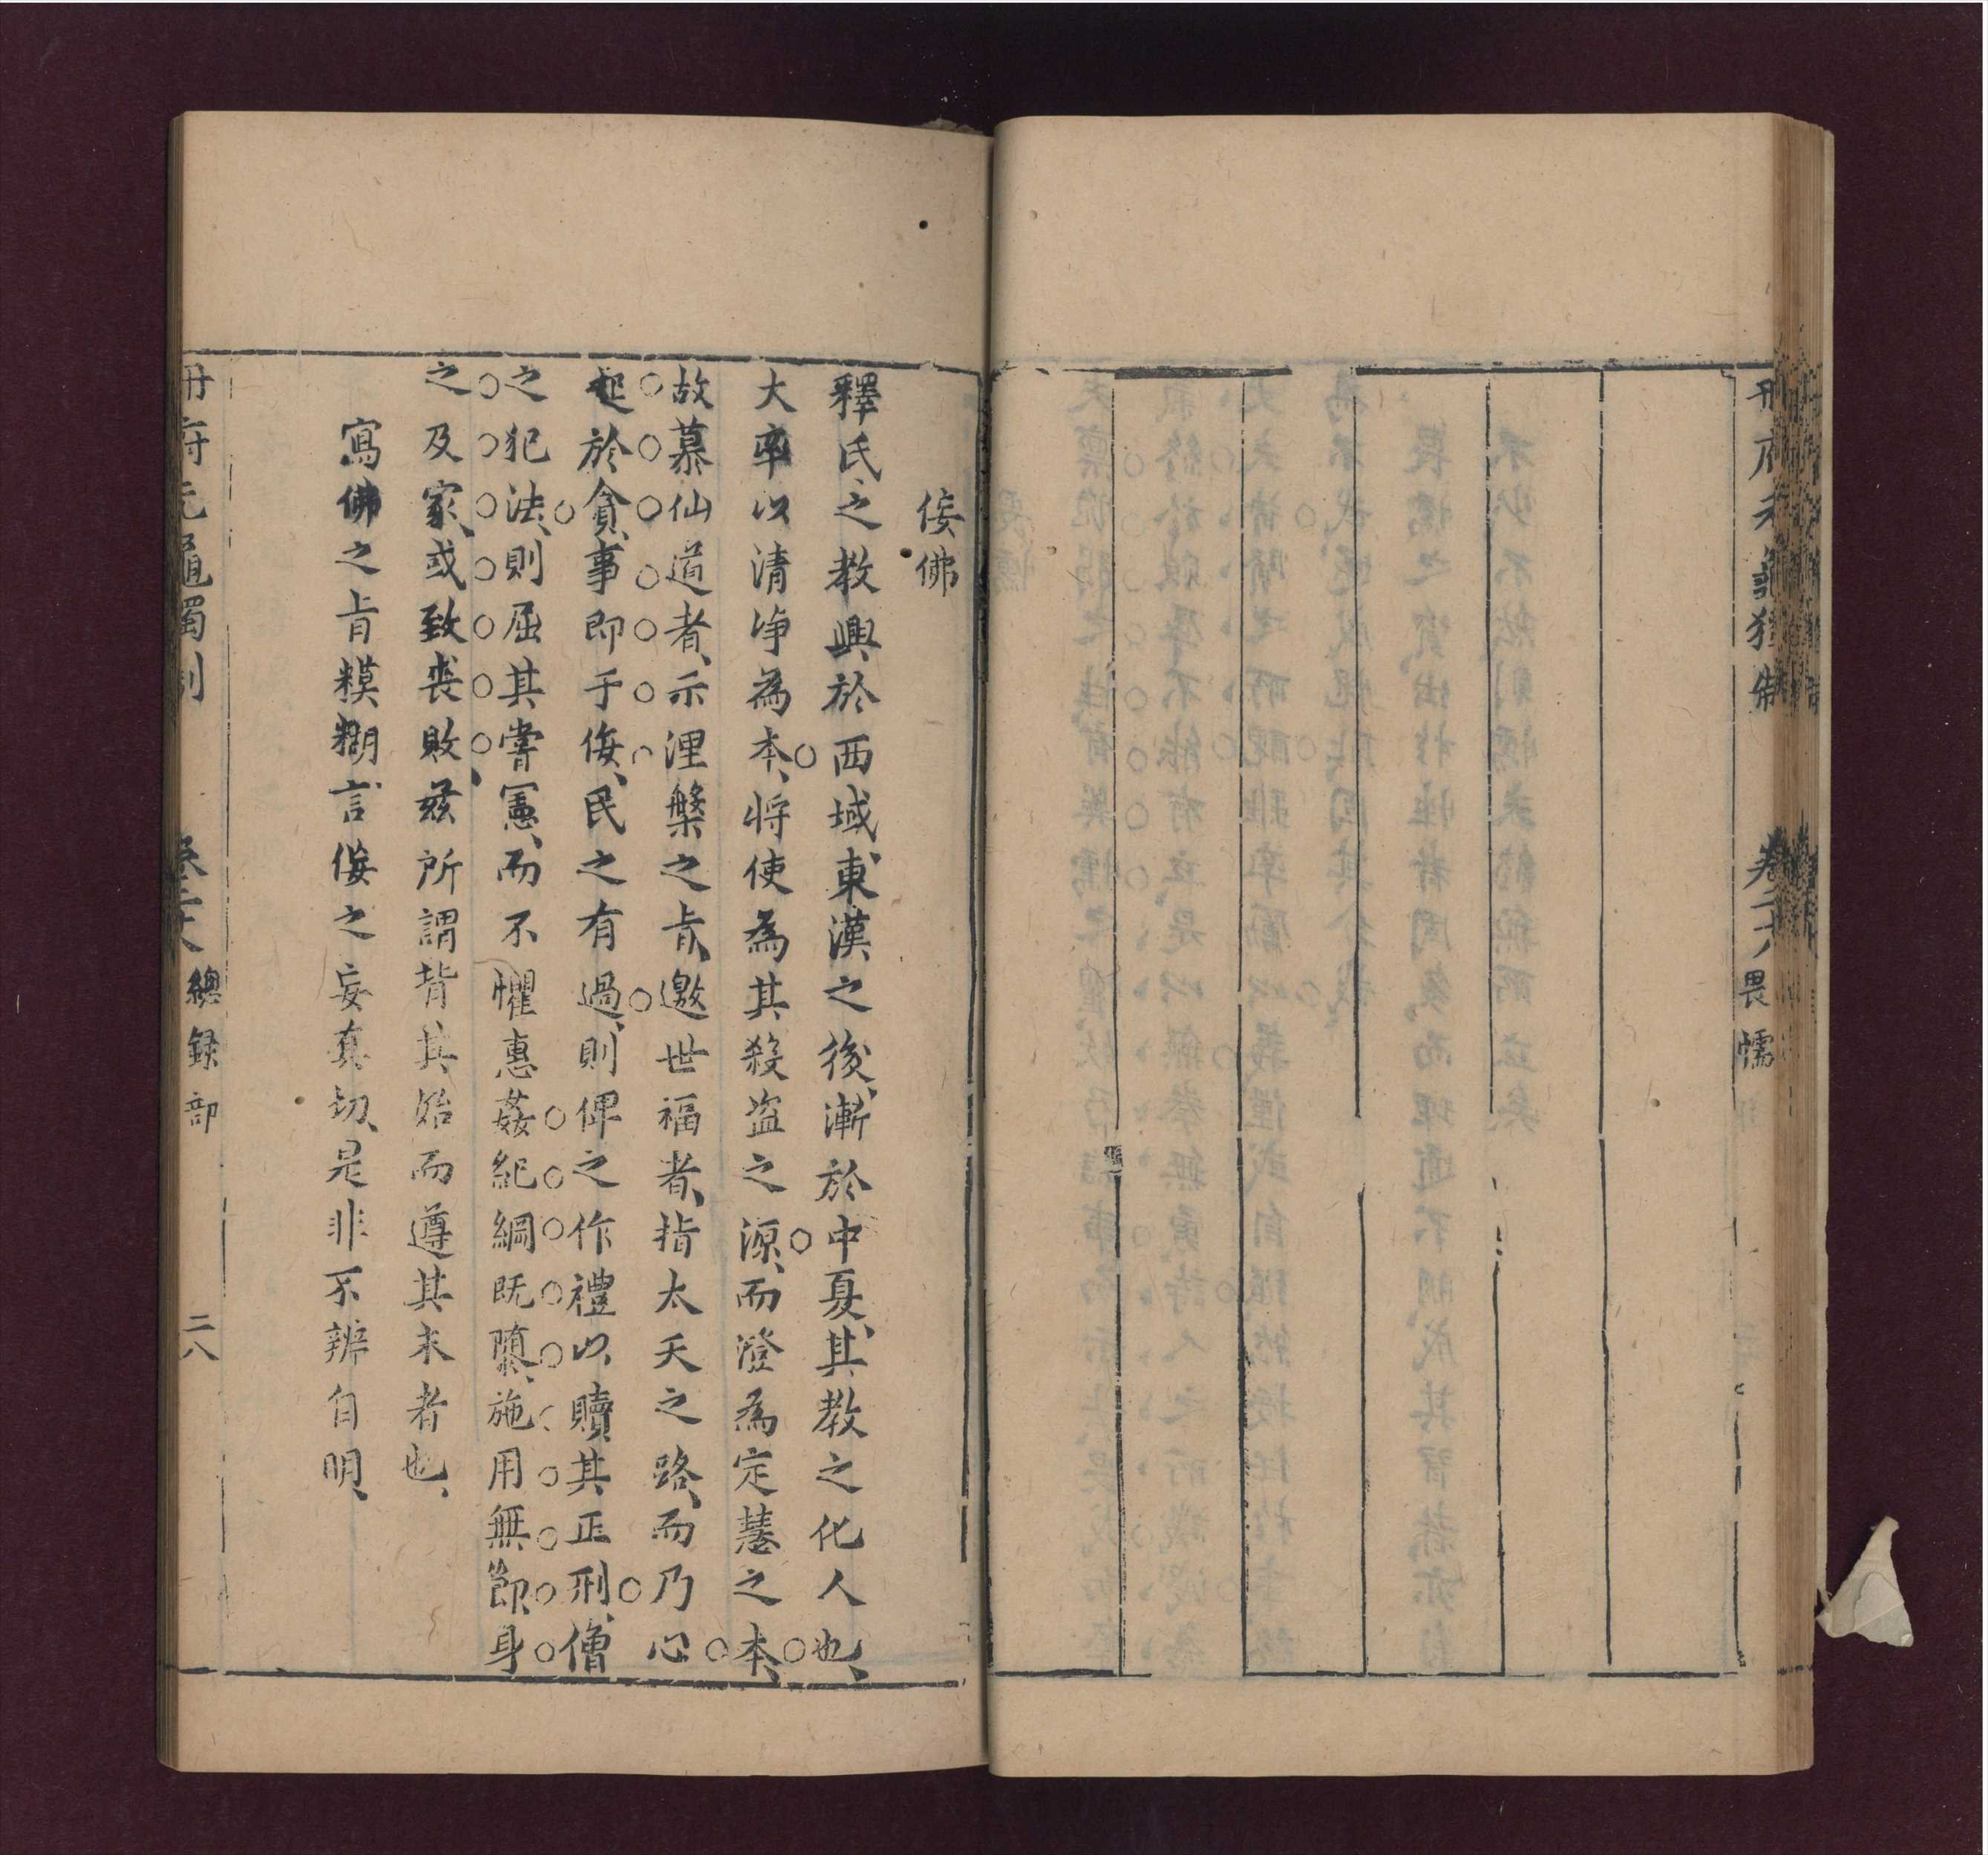 畏懦
佞佛
釋氏之教興於西域、東漢之後、漸於中夏、其教之化人也、
大率以清净為本、將使為其殺盗之源、而澄為定慧之本、
故慕仙道者、示涅槃之旨、邀世福者、指太天之路、而乃心
起於貪、事即于佞、民之有過、則俾之作禮以贖其正刑、僧
之犯法、則屈其嘗憲、而不懼惠姦紀綱既隳、施用無節、身
之及家、或致喪敗、兹所謂背其始而遵其末者也、
寫佛之旨糢糊、言佞之妄真切、是非不辨自明、
冊府元龜獨制
卷二十八
總録部
二八